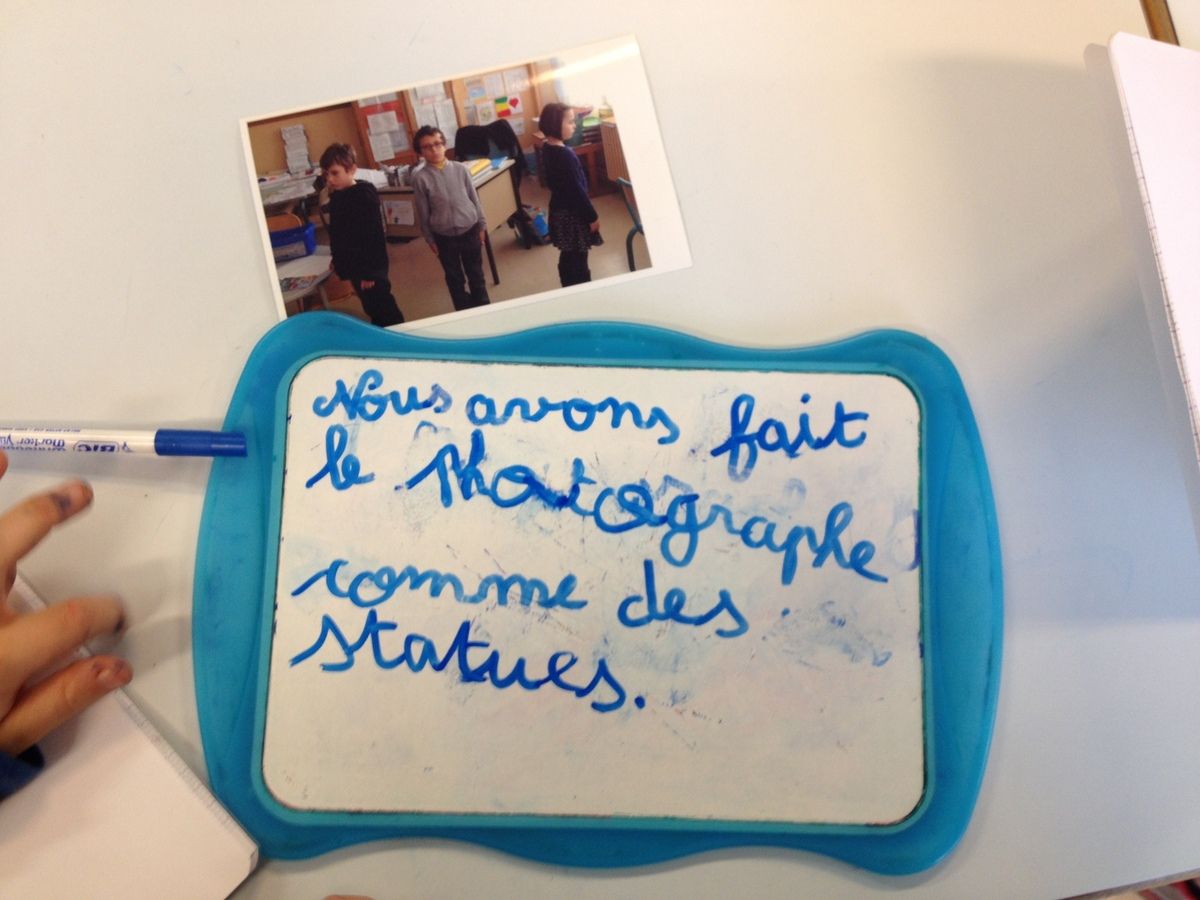 Nous avons fait
le Photographe
comme des
statues.
BIC